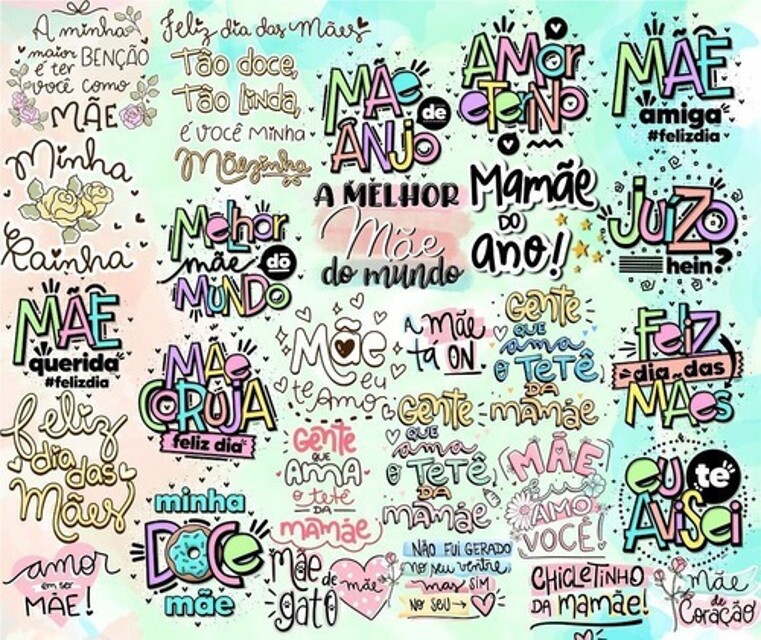 A minha
maior BENÇÃO
é ter
você como
MÃE
Feliz dia das Mães
Tão doce,
Tão Linda,
é você minha
Mãezinha
MÃe
de
ANJO
AMOr
eterno
MÃE
amiga
#felizdia
Minha
Rainha
Melhor
mãe do
MUNDO
A MELHOR
Mãe
do mundo
Mamãe
DO
ano!
JUÍZO
hein?
MÃE
querida
#felizdia
MÃe
CORUJA
feliz dia
Mãe
eu
te Amo
A mãe
tá ON
Gente
QUE
ama
O TETÊ
DA
mamãe
FeLiZ
dia das
MÃes
feliz
dia das
Mães
Gente
QUE
AMA
o tetê
DA
mamãe
Gente
QUE
ama
O TETÊ
DA
mamãe
MÃE
Eu
AMO
VOCÊ!
eu te
AViSei
minha
DOCe
mãe
amor
em ser
MÃE!
Mãe
de
gato
mãe
NÃO FUI GERADO
no seu ventre,
mas SIM
NO SEU →
CHICLETINHO
DA mamãe!
Mãe
de
Coração